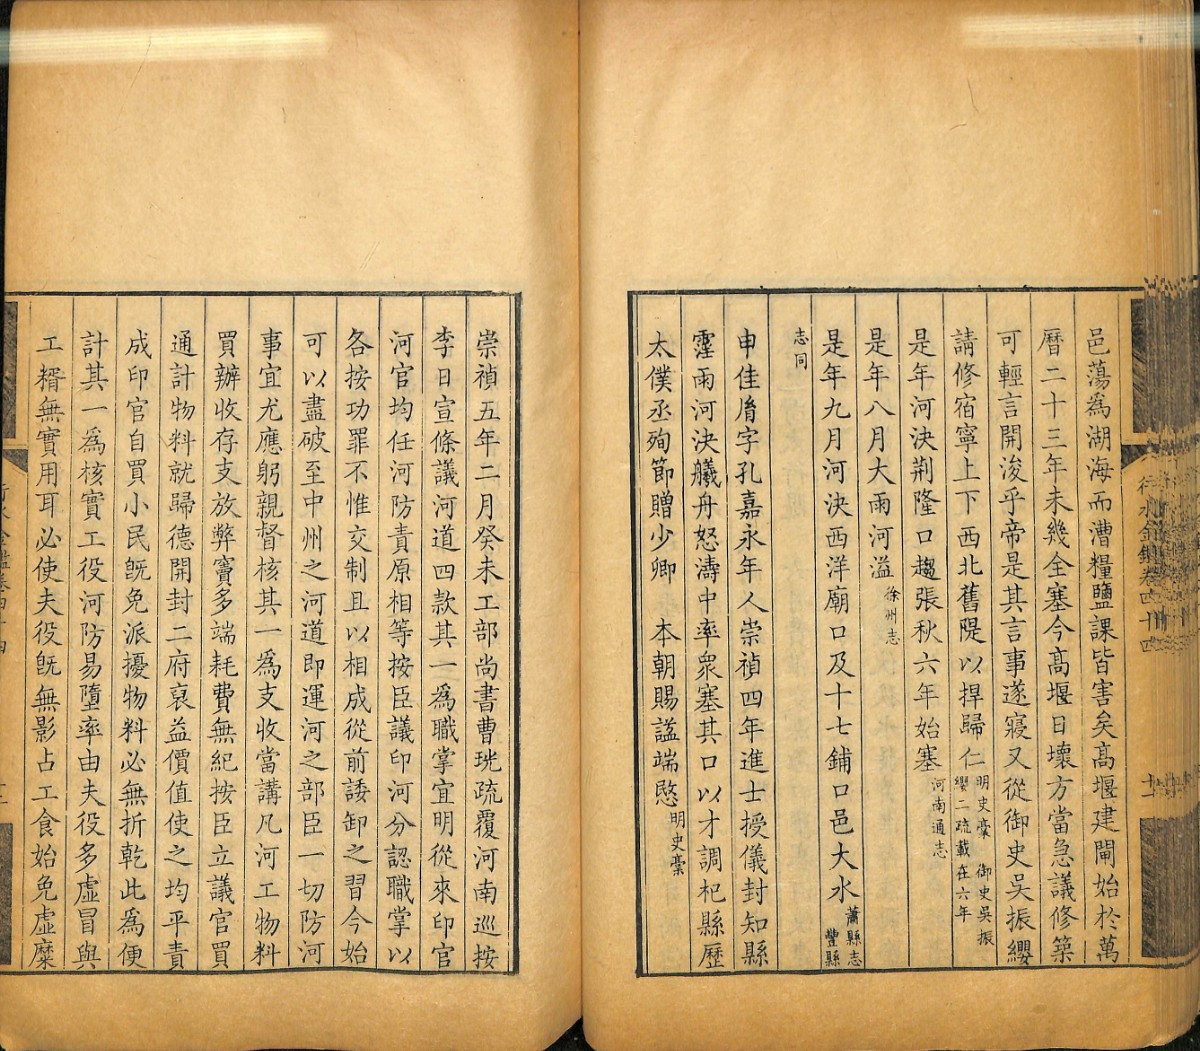 邑蕩為湖海而漕糧鹽課皆害矣髙堰建閘始於萬
曆二十三年未幾全塞今髙堰日壞方當急議修築
可輕言開浚乎帝是其言事遂寢又從御史吳振纓
請修宿寧上下西北舊隄以捍歸仁明史稾 御史吳振
纓二疏載在六年
是年河決荆隆口趨張秋六年始塞河南通志
是年八月大雨河溢徐州志
是年九月河決西洋廟口及十七鋪口邑大水蕭縣志
豐縣
志同
申佳胤字孔嘉永年人崇禎四年進士授儀封知縣
霪雨河決艤舟怒濤中率衆塞其口以才調杞縣歷
太僕丞殉節贈少卿 本朝賜諡端愍明史稾
行水金鑑卷四十四
十一
崇禎五年二月癸未工部尚書曹珖疏覆河南巡按
李日宣條議河道四款其一爲職掌宜明從來印官
河官均任河防責原相等按臣議印河分認職掌以
各按功罪不惟交制且以相成從前諉卸之習今始
可以盡破至中州之河道即運河之部臣一切防河
事宜尤應躬親督核其一爲支收當講凡河工物料
買辦收存支放弊竇多端耗費無紀按臣立議官買
通計物料就歸德開封二府裒益價值使之均平責
成印官自買小民旣免派擾物料必無折乾此為便
計其一爲核實工役河防易墮率由夫役多虛冒與
工糈無實用耳必使夫役旣無影占工食始免虛糜